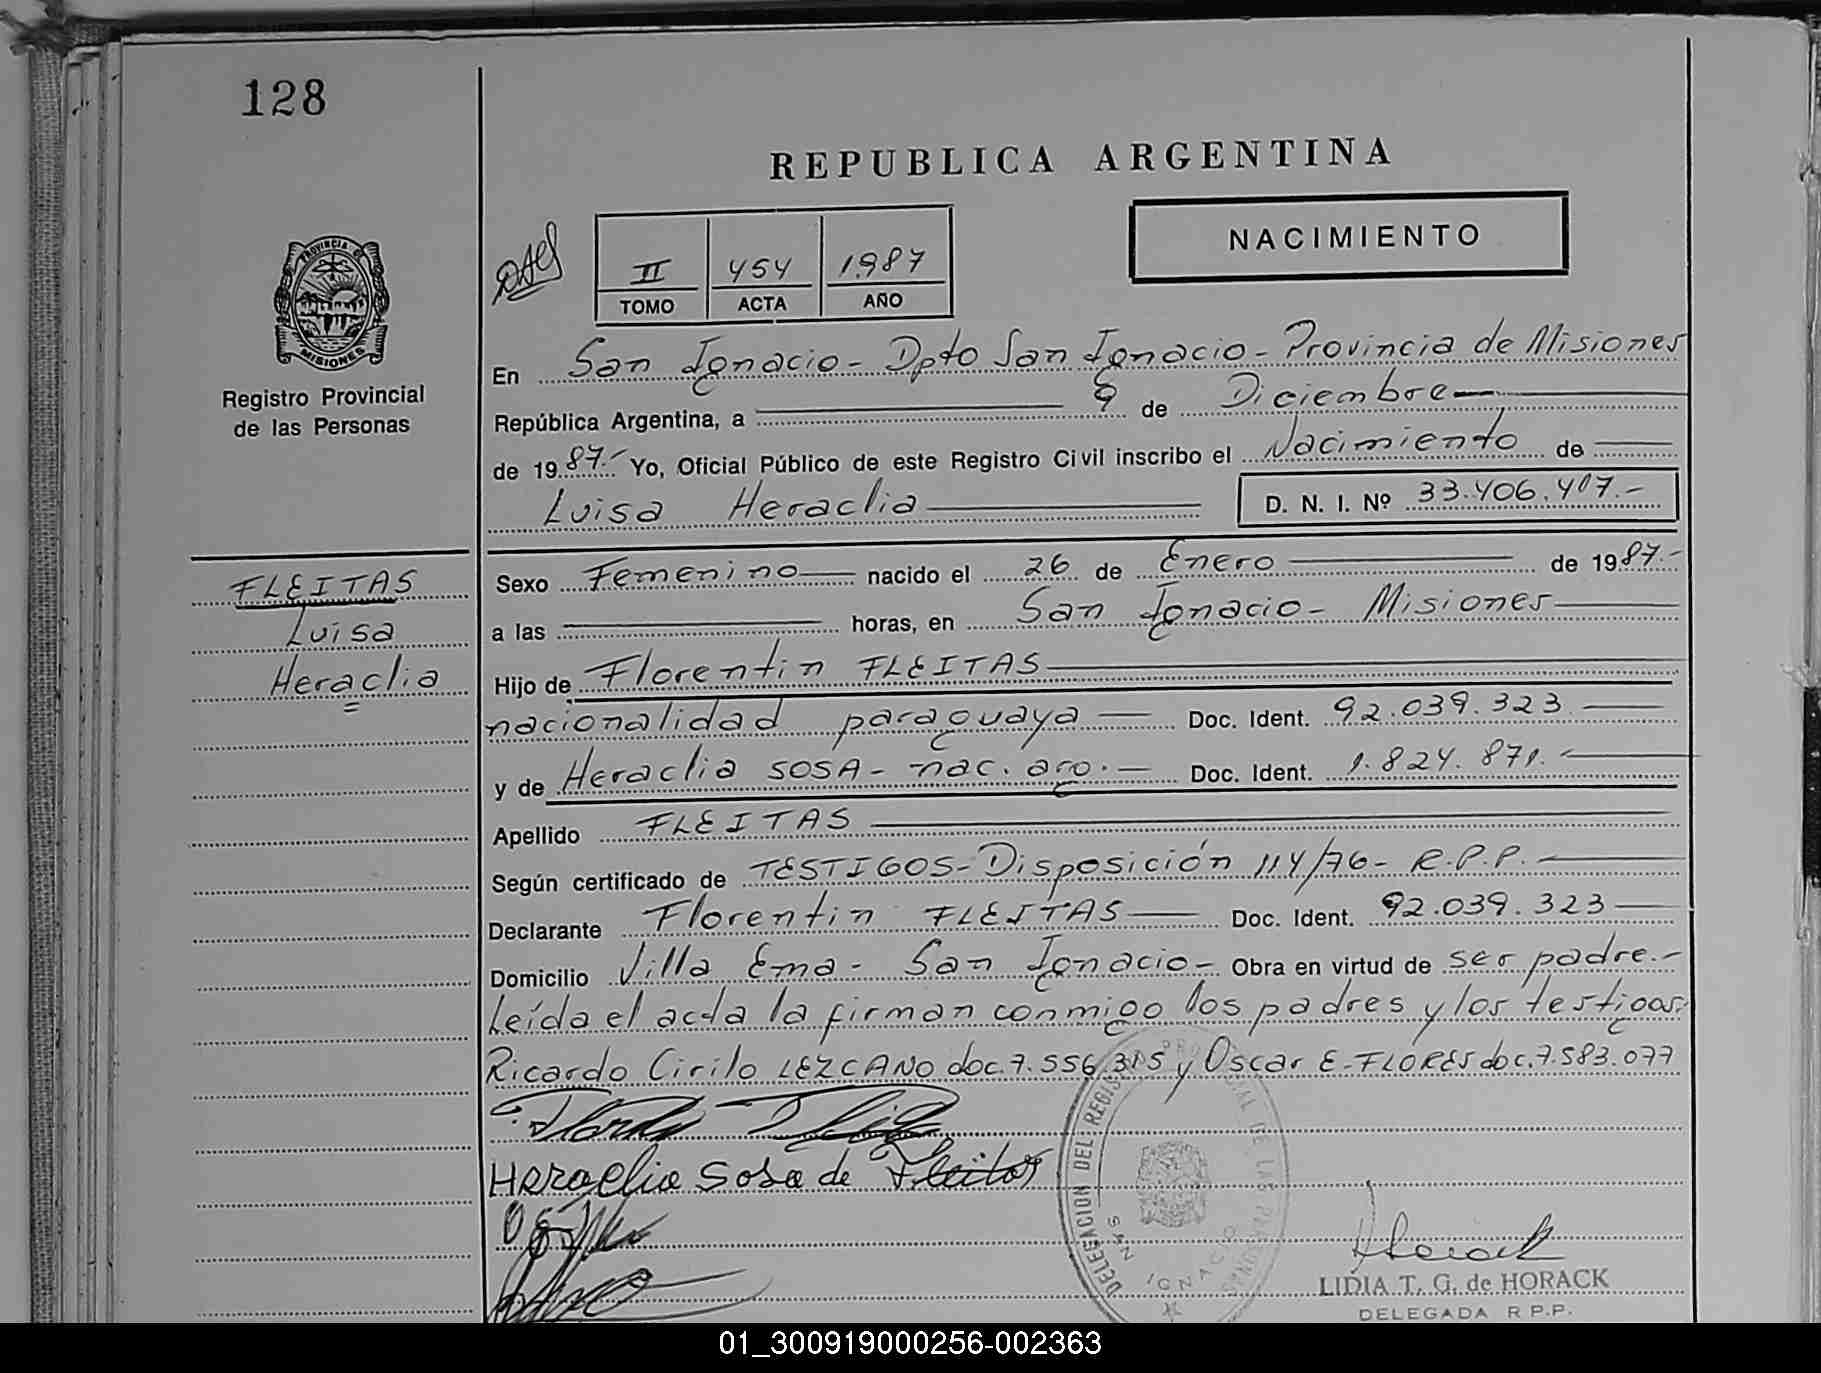 128
REPUBLICA ARGENTINA
NACIMIENTO
II 454 1987
TOMO ACTA AÑO
PROVINCIA DE
MISIONES
Registro Provincial
de las Personas
En San Ignacio - Dpto San Ignacio - Provincia de Misiones
República Argentina, a 9 de Diciembre
de 1987.- Yo, Oficial Público de este Registro Civil inscribo el Nacimiento de
Luisa Heraclia D. N. I. Nº 33.406.407.-
FLEITAS
Luisa
Heraclia
Sexo Femenino nacido el 26 de Enero de 1987.-
a las horas, en San Ignacio - Misiones
Hijo de Florentin FLEITAS
nacionalidad paraguaya Doc. Ident. 92.039.323
y de Heraclia SOSA - nac. arg. - Doc. Ident. 1.824.871.-
Apellido FLEITAS
Según certificado de TESTIGOS - Disposición 114/76 - R.P.P.
Declarante Florentin FLEITAS Doc. Ident. 92.039.323
Domicilio Villa Ema - San Ignacio - Obra en virtud de ser padre.-
Leída el acta la firman conmigo los padres y los testigos:
Ricardo Cirilo LEZCANO doc. 7.556.315 y Oscar E. FLORES doc. 7.583.077
Heraclia Sosa de Fleitas
DELEGACION DEL REGISTRO PROVINCIAL DE LAS PERSONAS
SAN IGNACIO
Horack
LIDIA T. G. de HORACK
DELEGADA R P.P.
01_300919000256-002363